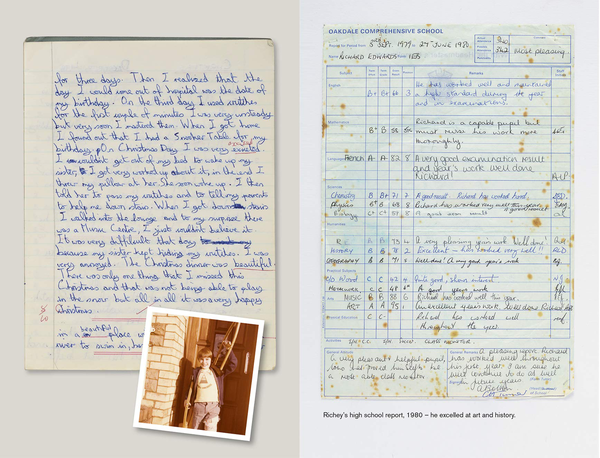 for three days. Then I realized that the
day I would come out of hospital was the date of
my birthday. On the third day I used crutches
for the first couple of minutes I was very unsteady
but very soon I mastered them. When I got home
I found out that I had a Snooker Table for my
birthday. On Christmas Day I was very excited
I couldn't get out of my bed to wake up my
sister I got very worked about it, in the end I
threw my pillow at her. She soon woke up. I then
told her to pass my crutches and to tell my parents
to help me down stairs. When I got down stairs
I walked into the lounge and to my surprise there
was a Music Centre, I just couldn't believe it.
It was very difficult that day
because my sister kept hiding my crutches. I was
very annoyed. The Christmas dinner was beautiful.
There was only one thing that I missed this
Christmas and that was not being able to play
in the snow but all in all it was a very happy
Christmas
in a beautiful place
OAKDALE COMPREHENSIVE SCHOOL
Report for Period from 5th SEPT. 1979 - 27th JUNE 1980.
Most pleasing.
RICHARD EDWARDS
Subject
Remarks
English
B+ B+ H 3
He has worked well and maintained
a high standard during the year
and in examinations.
Richard is a capable pupil but
must revise his work more
thoroughly.
French A A 82 8
A very good examination result
and year's work. Well done,
Richard!
Sciences
Chemistry B B+ 71 7 A good result. Richard has worked hard.
Physics Richard has worked very well this year.
Biology A good exam result
R.E. A very pleasing year's work. Well done!
History B B 78 2 Excellent - has worked very well!!
Geography Well done! A very good year's work
Practical Subjects
Quite good, shows interest
A good year's work
MUSIC B B 88 6 Richard has worked well this year
ART A A 85 An excellent year's work. Well done Richard
Physical Education C C Richard has worked well
throughout the year.
Activities
General Attitude
A very pleasant & helpful pupil,
who has proved himself to be
a most able class monitor
General Remarks
A pleasing report. Richard
has worked well throughout
his first year. I am sure he
will continue to do as well
in future years
Richey's high school report, 1980 – he excelled at art and history.